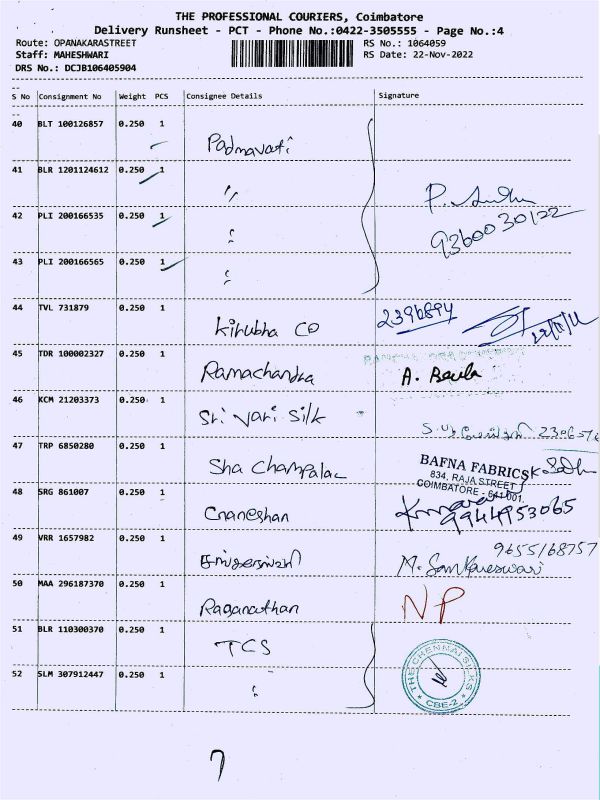 THE PROFESSIONAL COURIERS, Coimbatore
Delivery Runsheet - PCT - Phone No.:0422-3505555 - Page No.:4
Route: OPANAKARASTREET RS No.: 1064059
Staff: MAHESHWARI RS Date: 22-Nov-2022
DRS No.: DCJB106405904
S No Consignment No Weight PCS Consignee Details Signature
40 BLT 100126857 0.250 1
Padmavati
41 BLR 1201124612 0.250 1
"
42 PLI 200166535 0.250 1
P.
9360030122
43 PLI 200166565 0.250 1
44 TVL 731879 0.250 1
Kirubha CO 2396894 22/11/22
45 TDR 100002327 0.250 1
Ramachandra A. Beula
46 KCM 21203373 0.250 1
Sri Vari Silk
47 TRP 6850280 0.250 1
Sha Champalac
BAFNA FABRICS
834, RAJA STREET
COIMBATORE - 641 001.
48 SRG 861007 0.250 1
Cnaneshan Kumaran
9944953065
49 VRR 1657982 0.250 1
9655168757
M. Sankareswari
50 MAA 296187370 0.250 1
Raganathan NP
51 BLR 110300370 0.250 1
TCS
THE CHENNAI SILKS
CBE-2
52 SLM 307912447 0.250 1
7